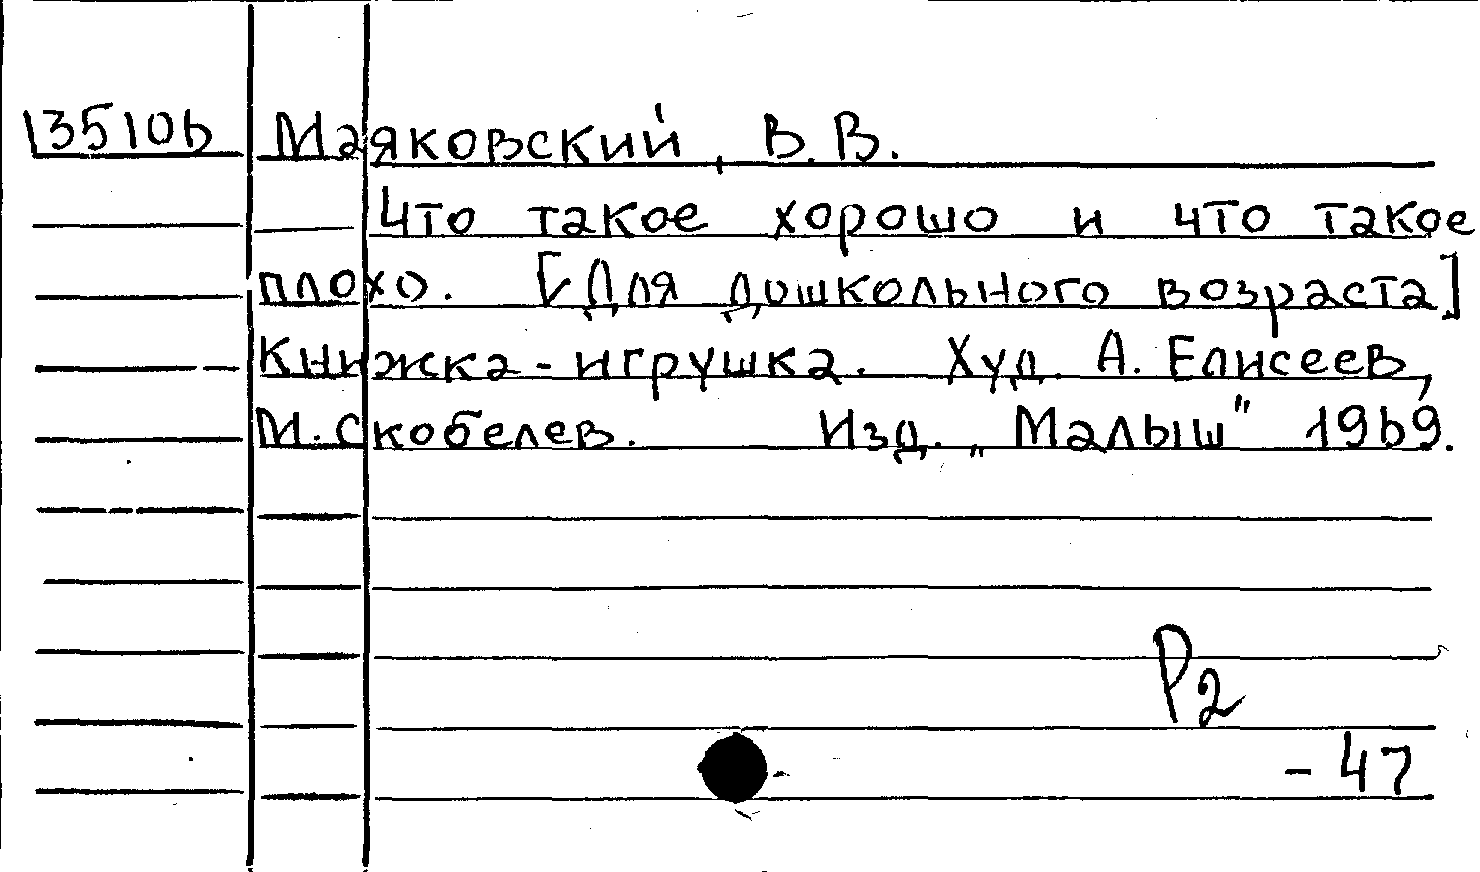 135106 Маяковский, В. В.
Что такое хорошо и что такое
плохо. [Для дошкольного возраста]
Книжка-игрушка. Худ. А. Елисеев,
М. Скобелев. Изд. „Малыш" 1969.
Р2
- 47